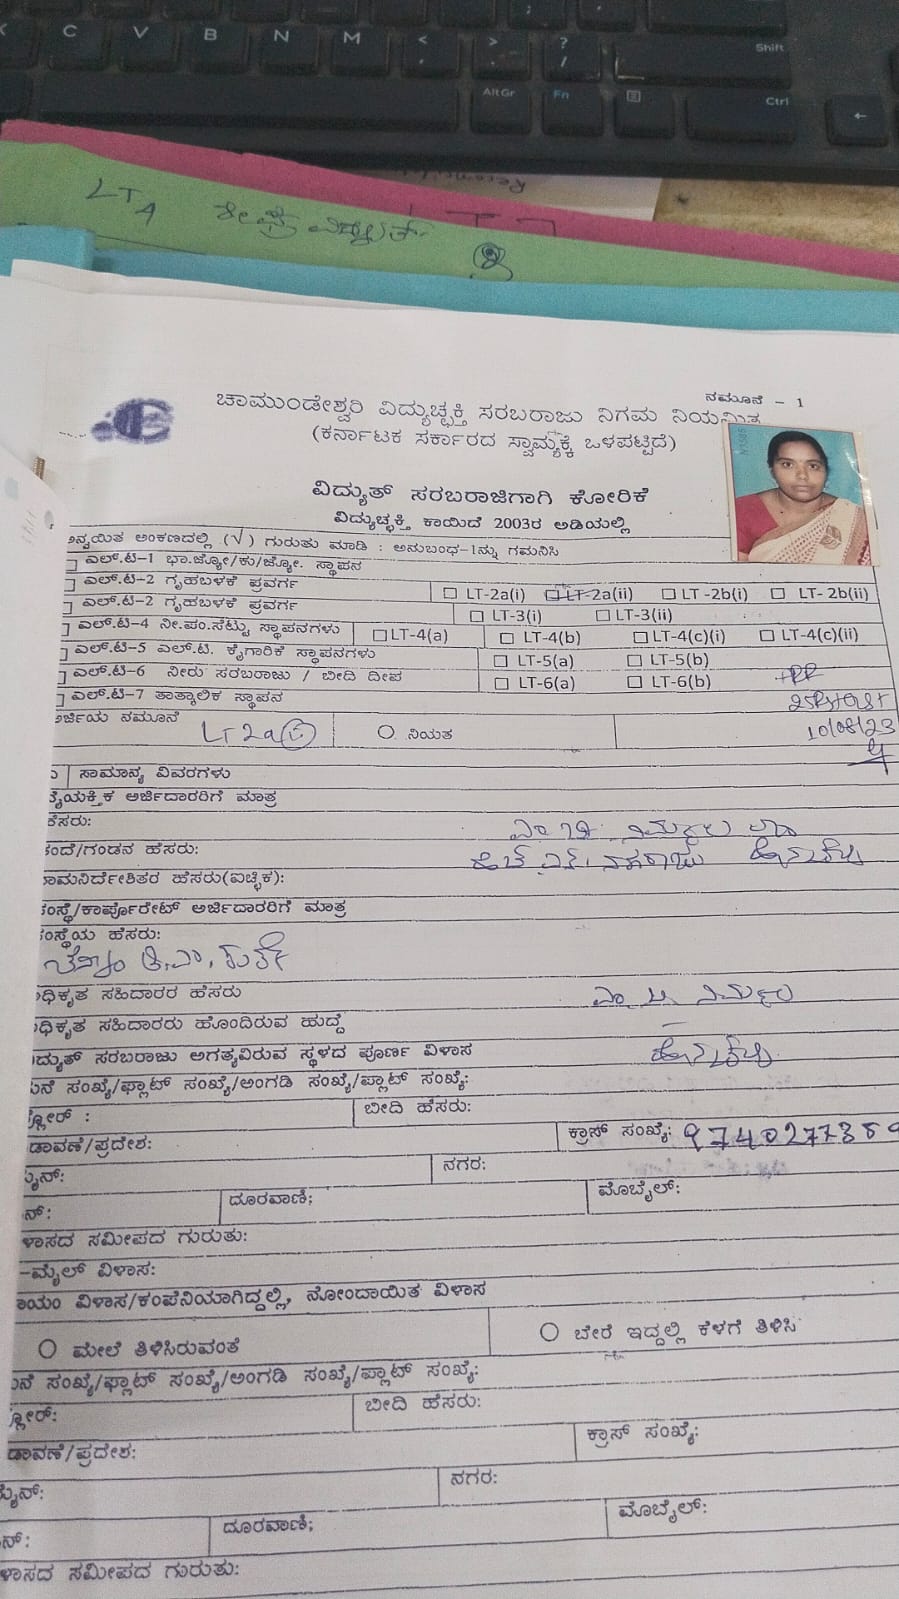 C V B N M < > ? / Shift
AltGr Fn Ctrl ←
LT4
ನಮೂನೆ - 1
ಚಾಮುಂಡೇಶ್ವರಿ ವಿದ್ಯುಚ್ಛಕ್ತಿ ಸರಬರಾಜು ನಿಗಮ ನಿಯಮಿತ
(ಕರ್ನಾಟಕ ಸರ್ಕಾರದ ಸ್ವಾಮ್ಯಕ್ಕೆ ಒಳಪಟ್ಟಿದೆ)
ವಿದ್ಯುತ್ ಸರಬರಾಜಿಗಾಗಿ ಕೋರಿಕೆ
ವಿದ್ಯುಚ್ಛಕ್ತಿ ಕಾಯಿದೆ 2003ರ ಅಡಿಯಲ್ಲಿ
ಅನ್ವಯಿತ ಅಂಕಣದಲ್ಲಿ (√) ಗುರುತು ಮಾಡಿ : ಅನುಬಂಧ-1ನ್ನು ಗಮನಿಸಿ
ಎಲ್.ಟಿ-1 ಭಾ.ಜ್ಯೋ/ಕು/ಜ್ಯೋ. ಸ್ಥಾಪನ
ಎಲ್.ಟಿ-2 ಗೃಹಬಳಕೆ ಪ್ರವರ್ಗ LT-2a(i) LT-2a(ii) LT -2b(i) LT- 2b(ii)
ಎಲ್.ಟಿ-2 ಗೃಹಬಳಕೆ ಪ್ರವರ್ಗ LT-3(i) LT-3(ii)
ಎಲ್.ಟಿ-4 ನೀ.ಪಂ.ಸೆಟ್ಟು ಸ್ಥಾಪನಗಳು LT-4(a) LT-4(b) LT-4(c)(i) LT-4(c)(ii)
ಎಲ್.ಟಿ-5 ಎಲ್.ಟಿ. ಕೈಗಾರಿಕೆ ಸ್ಥಾಪನಗಳು LT-5(a) LT-5(b)
ಎಲ್.ಟಿ-6 ನೀರು ಸರಬರಾಜು / ಬೀದಿ ದೀಪ LT-6(a) LT-6(b)
ಎಲ್.ಟಿ-7 ತಾತ್ಕಾಲಿಕ ಸ್ಥಾಪನ
ಅರ್ಜಿಯ ನಮೂನೆ LT2a(i) ನಿಯತ 10/08/23
ಸಾಮಾನ್ಯ ವಿವರಗಳು
ವೈಯಕ್ತಿಕ ಅರ್ಜಿದಾರರಿಗೆ ಮಾತ್ರ
ಹೆಸರು:
ತಂದೆ/ಗಂಡನ ಹೆಸರು:
ನಾಮನಿರ್ದೇಶಿತರ ಹೆಸರು(ಐಚ್ಛಿಕ):
ಸಂಸ್ಥೆ/ಕಾರ್ಪೊರೇಟ್ ಅರ್ಜಿದಾರರಿಗೆ ಮಾತ್ರ
ಸಂಸ್ಥೆಯ ಹೆಸರು:
ಅಧಿಕೃತ ಸಹಿದಾರರ ಹೆಸರು
ಅಧಿಕೃತ ಸಹಿದಾರರು ಹೊಂದಿರುವ ಹುದ್ದೆ
ವಿದ್ಯುತ್ ಸರಬರಾಜು ಅಗತ್ಯವಿರುವ ಸ್ಥಳದ ಪೂರ್ಣ ವಿಳಾಸ
ಮನೆ ಸಂಖ್ಯೆ/ಫ್ಲಾಟ್ ಸಂಖ್ಯೆ/ಅಂಗಡಿ ಸಂಖ್ಯೆ/ಪ್ಲಾಟ್ ಸಂಖ್ಯೆ:
ಫ್ಲೋರ್ : ಬೀದಿ ಹೆಸರು:
ಬಡಾವಣೆ/ಪ್ರದೇಶ: ಕ್ರಾಸ್ ಸಂಖ್ಯೆ: 9740277389
ಮೈನ್: ನಗರ:
ಪಿನ್: ದೂರವಾಣಿ; ಮೊಬೈಲ್:
ವಿಳಾಸದ ಸಮೀಪದ ಗುರುತು:
ಇ-ಮೈಲ್ ವಿಳಾಸ:
ಖಾಯಂ ವಿಳಾಸ/ಕಂಪೆನಿಯಾಗಿದ್ದಲ್ಲಿ, ನೋಂದಾಯಿತ ವಿಳಾಸ
ಮೇಲೆ ತಿಳಿಸಿರುವಂತೆ ಬೇರೆ ಇದ್ದಲ್ಲಿ ಕೆಳಗೆ ತಿಳಿಸಿ
ಮನೆ ಸಂಖ್ಯೆ/ಫ್ಲಾಟ್ ಸಂಖ್ಯೆ/ಅಂಗಡಿ ಸಂಖ್ಯೆ/ಪ್ಲಾಟ್ ಸಂಖ್ಯೆ:
ಫ್ಲೋರ್: ಬೀದಿ ಹೆಸರು:
ಬಡಾವಣೆ/ಪ್ರದೇಶ: ಕ್ರಾಸ್ ಸಂಖ್ಯೆ:
ಮೈನ್: ನಗರ:
ಪಿನ್: ದೂರವಾಣಿ; ಮೊಬೈಲ್:
ವಿಳಾಸದ ಸಮೀಪದ ಗುರುತು: